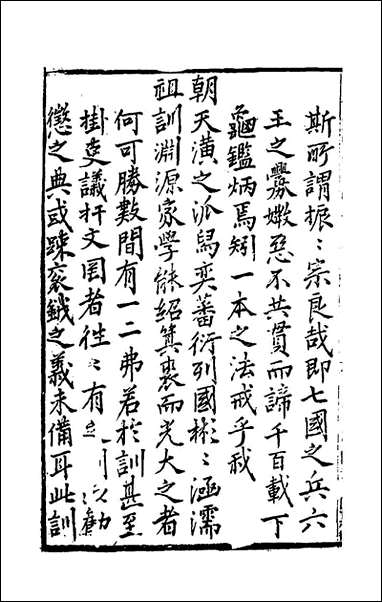 斯所謂振〻宗良哉即七國之兵六
王之釁媺惡不共貫而諦千百載下
龜鑑炳焉矧一本之法戒乎我
朝天潢之派舄奕蕃衍列國彬〻涵濡
祖訓淵源家學能紹箕裘而光大之者
何可勝數間有一二弗若於訓甚至
挂吏議扞文罔者徃〻有
懲之典或踈袞鉞之義未備耳此訓